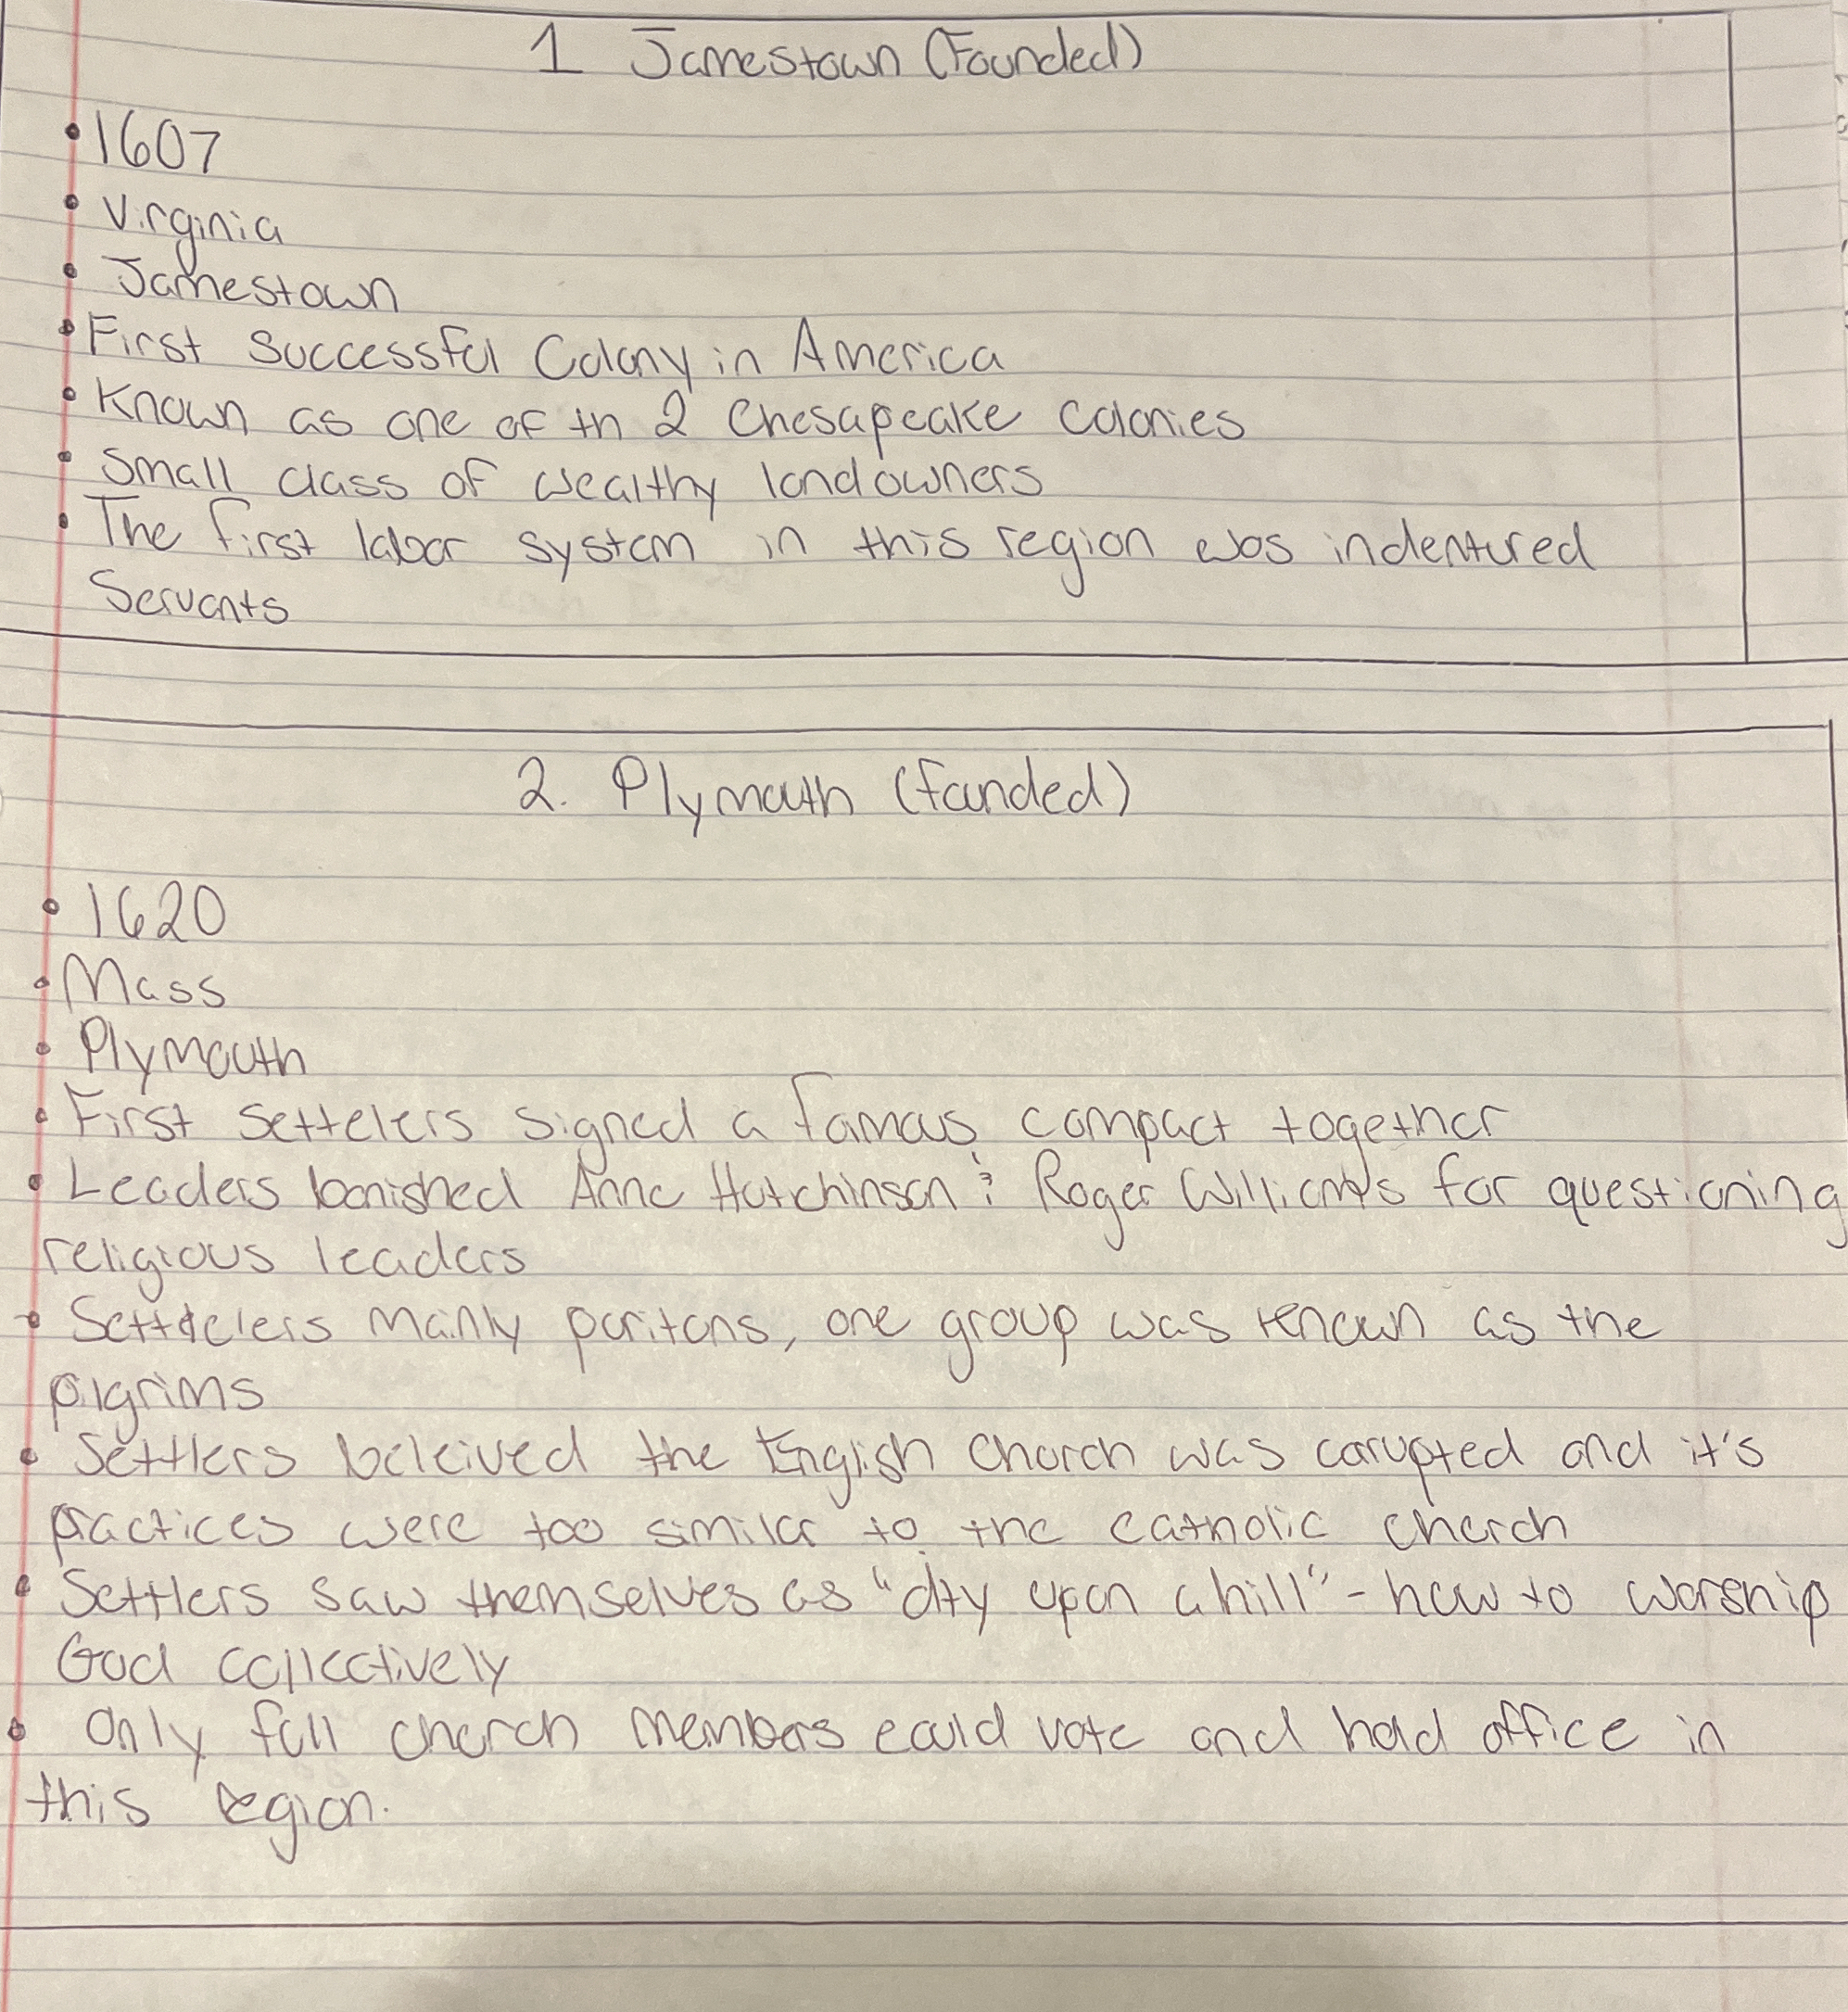 1 Jamestown (Founded)
• 1607
• Virginia
• Jamestown
• First successful Colony in America
• Known as one of th 2 Chesapeake Colonies
• Small class of wealthy landowners
• The first labor system in this region was indentured
Servants
2. Plymouth (founded)
• 1620
• Mass
• Plymouth
• First settelers signed a famous compact together
• Leaders banished Anne Hutchinson & Roger Williams for questioning
religious leaders
• Settelers mainly puritans, one group was known as the
pilgrims
• Settlers beleived the English Church was corupted and it's
practices were too similar to the catholic church
• Settlers saw themselves as "city upon a hill" - how to worship
God collectively
• Only full church members could vote and hold office in
this region.